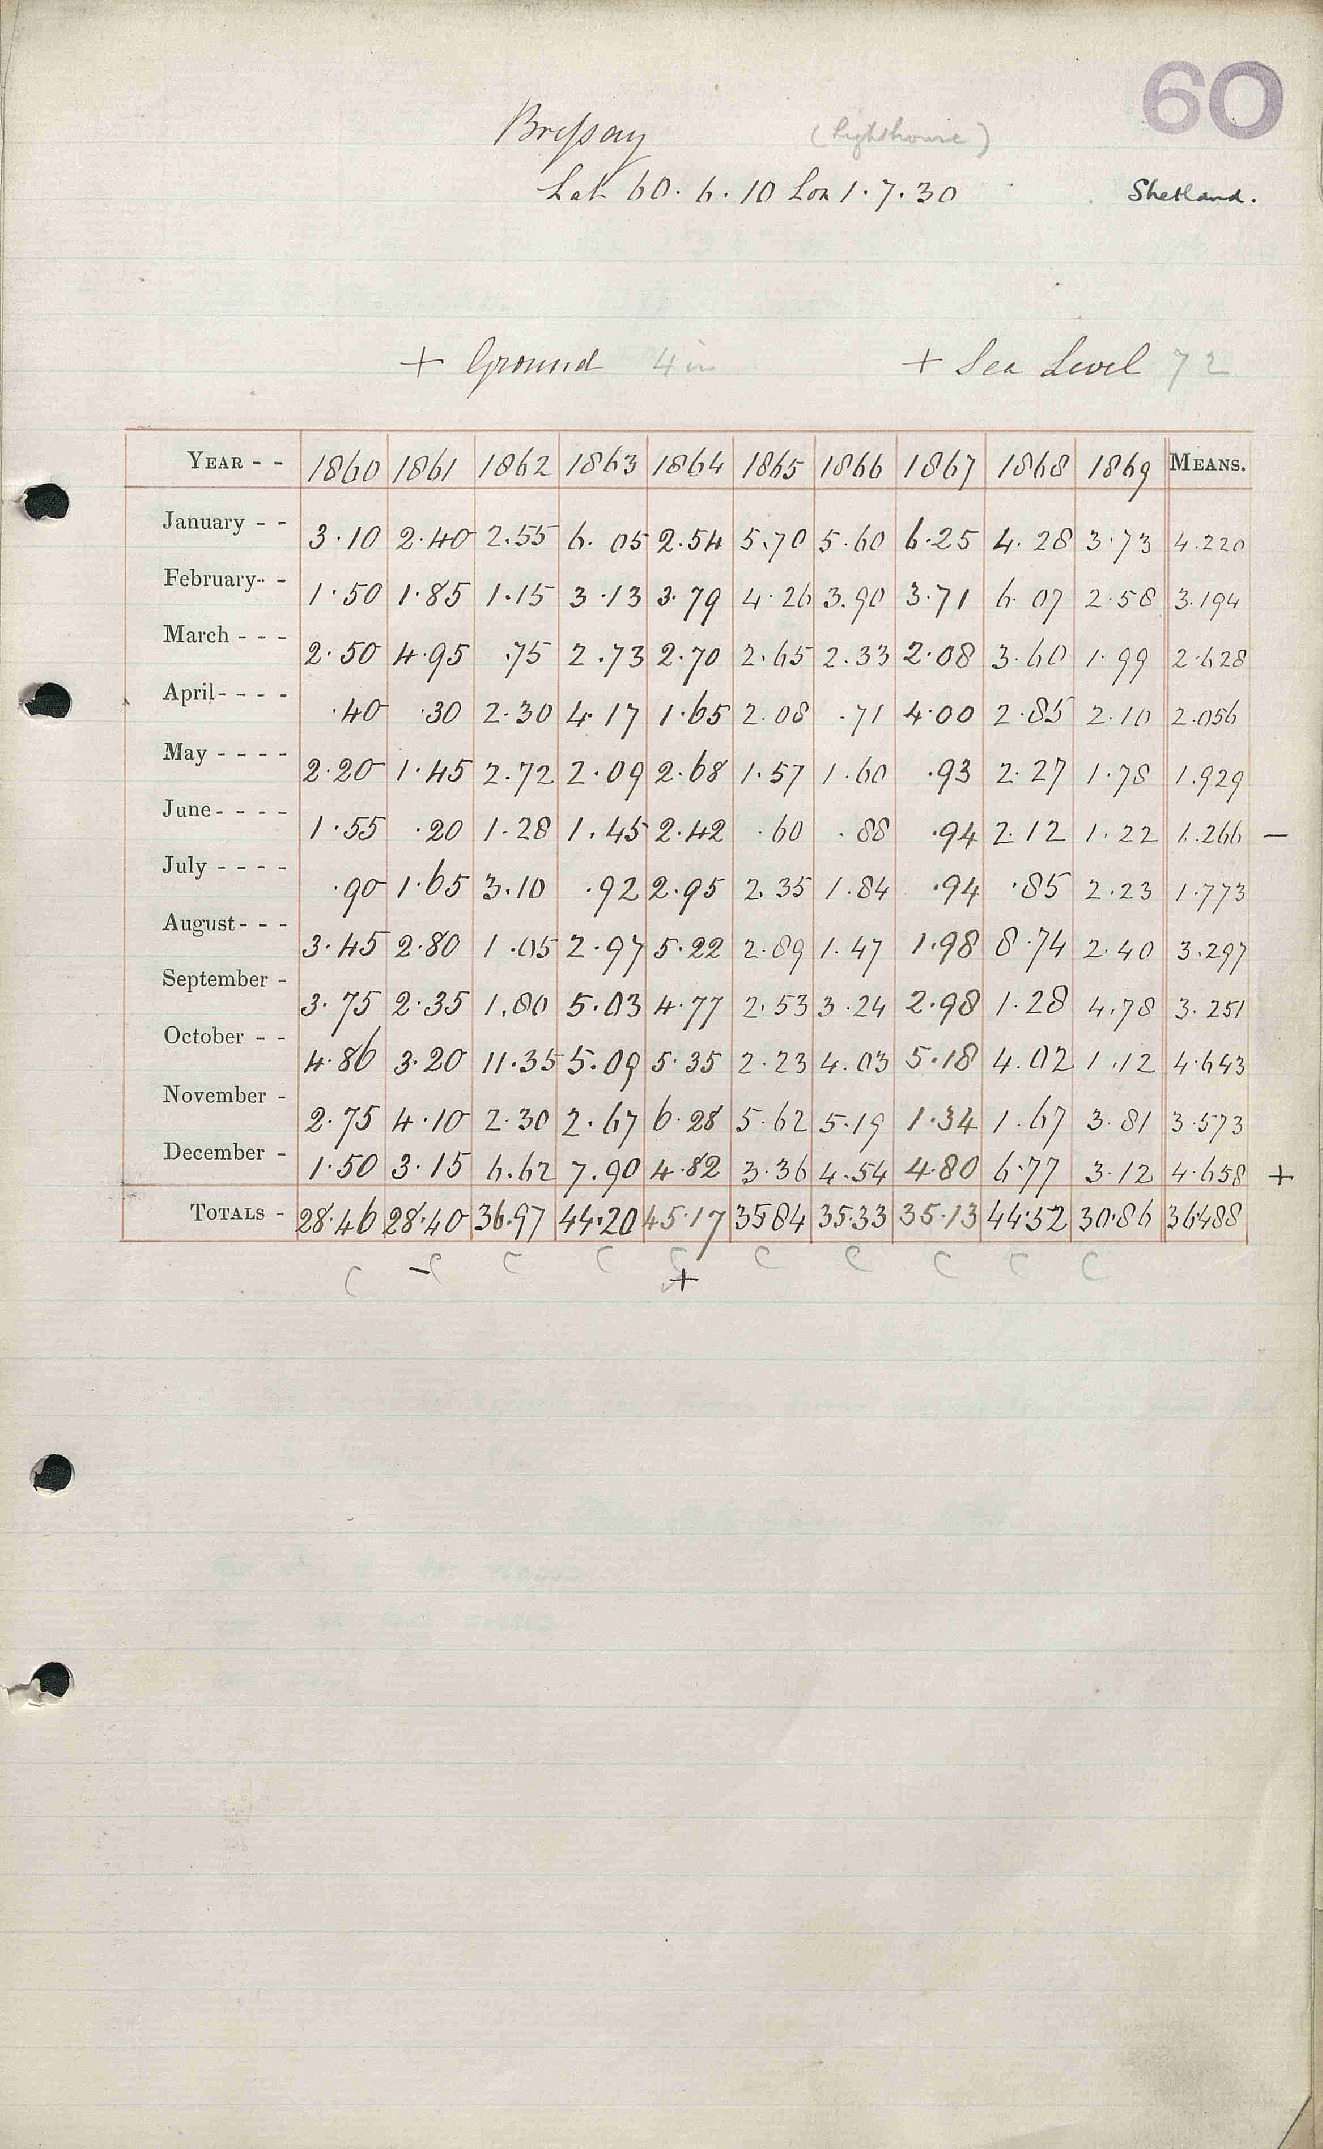 60
Breſsay (Lighthouse)
Lat 60.6.10 Lon 1.7.30 Shetland.
+ Ground 4 in + Sea Level 72
YEAR - - 1860 1861 1862 1863 1864 1865 1866 1867 1868 1869 MEANS.
January - - 3.10 2.40 2.55 6.05 2.54 5.70 5.60 6.25 4.28 3.73 4.220
February - - 1.50 1.85 1.15 3.13 3.79 4.26 3.90 3.71 6.07 2.58 3.194
March - - - 2.50 4.95 .75 2.73 2.70 2.65 2.33 2.08 3.60 1.99 2.628
April - - - - .40 .30 2.30 4.17 1.65 2.08 .71 4.00 2.85 2.10 2.056
May - - - - 2.20 1.45 2.72 2.09 2.68 1.57 1.60 .93 2.27 1.78 1.929
June - - - - 1.55 .20 1.28 1.45 2.42 .60 .88 .94 2.12 1.22 1.266 —
July - - - - .90 1.65 3.10 .92 2.95 2.35 1.84 .94 .85 2.23 1.773
August - - - 3.45 2.80 1.05 2.97 5.22 2.89 1.47 1.98 8.74 2.40 3.297
September - 3.75 2.35 1.80 5.03 4.77 2.53 3.24 2.98 1.28 4.78 3.251
October - - 4.86 3.20 11.35 5.09 5.35 2.23 4.03 5.18 4.02 1.12 4.643
November - 2.75 4.10 2.30 2.67 6.28 5.62 5.19 1.34 1.67 3.81 3.573
December - 1.50 3.15 6.62 7.90 4.82 3.36 4.54 4.80 6.77 3.12 4.658 +
TOTALS - 28.46 28.40 36.97 44.20 45.17 35.84 35.33 35.13 44.52 30.86 36.488
C C C C C C C C C C
— +